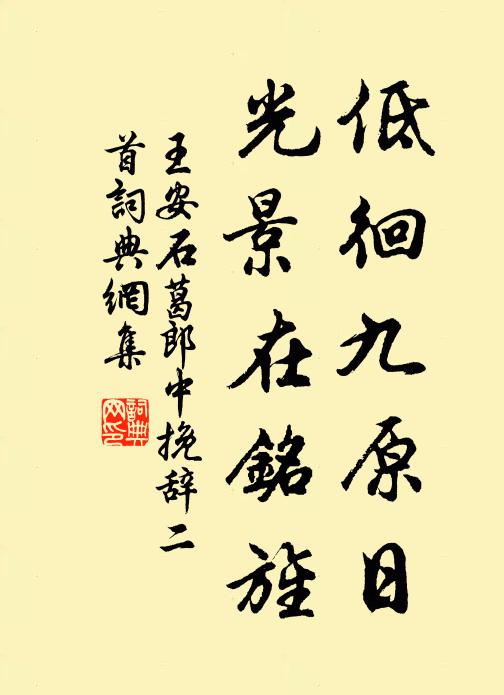 低徊九原日
光景在銘旌
王安石葛郎中挽辞二
首詞典網集
詞典
网印